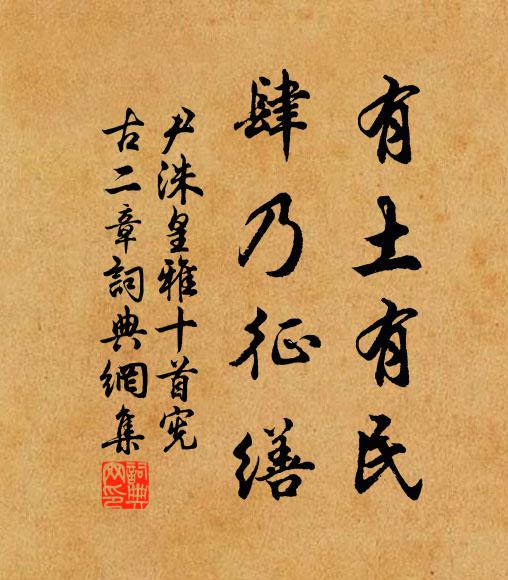 有土有民
肆乃征繕
尹洙皇雅十首宪
古二章詞典網集
詞典
网印